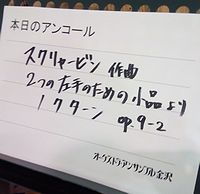 本日のアンコール
スクリャービン 作曲
2つの左手のための小品より
ノクターン op.9-2
オーケストラアンサンブル金沢